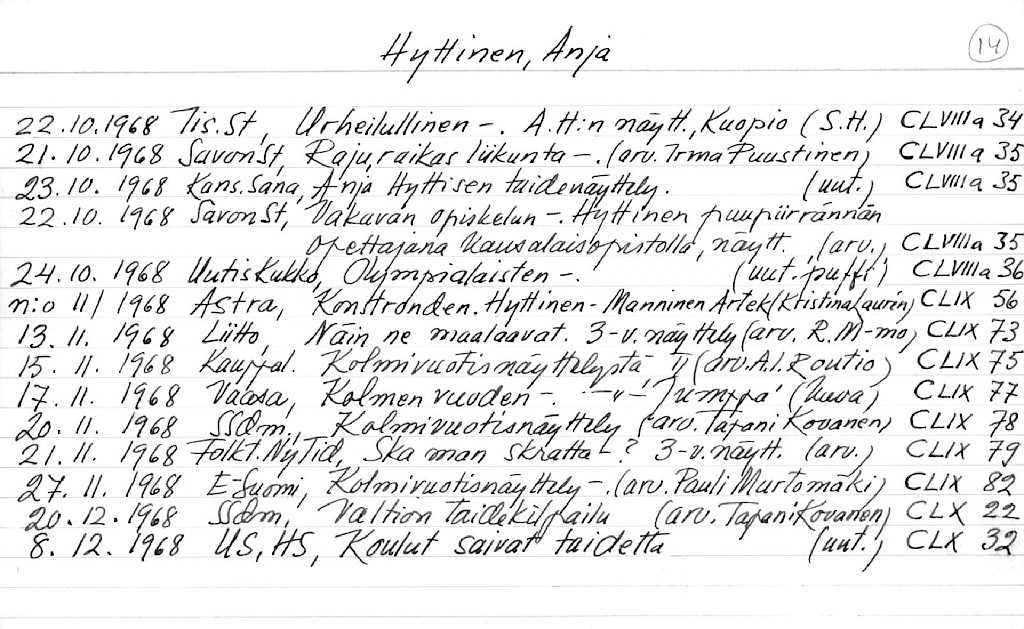 Hyttinen, Anja 14
22.10.1968 Tis.St, Urheilullinen -. A.H:n näytt., Kuopio (S.H.) CLVIIIa 34
21.10.1968 SavonSt, Raju, raikas liikunta -. (arv. Irma Puustinen) CLVIIIa 35
23.10.1968 Kans.Sana, Anja Hyttisen taidenäyttely. (uut.) CLVIIIa 35
22.10.1968 SavonSt, Vakavan opiskelun -. Hyttinen puupiirrännän
opettajana Kansalaisopistolla, näytt. (arv.) CLVIIIa 35
24.10.1968 UutisKukko, Olympialaisten -. (uut. puffi) CLVIIIa 36
n:o 11/1968 Astra, Konstronden. Hyttinen-Manninen Artek (Kristina Laurén) CLIX 56
13.11.1968 Liitto, Näin ne maalaavat. 3-v. näyttely (arv. R.M-mo) CLIX 73
15.11.1968 Kauppal. Kolmivuotisnäyttelystä II (arv. A.I. Routio) CLIX 75
17.11.1968 Vaasa, Kolmen vuoden -. -"- "Jumppa" (kuva) CLIX 77
20.11.1968 SSdm, Kolmivuotisnäyttely (arv. Tapani Kovanen) CLIX 78
21.11.1968 Folkt.NyTid, Ska man skratta -? 3-v. näytt. (arv.) CLIX 79
27.11.1968 E-Suomi, Kolmivuotisnäyttely -. (arv. Pauli Murtomäki) CLIX 82
20.12.1968 SSdm, Valtion taidekilpailu (arv. Tapani Kovanen) CLX 22
8.12.1968 US, HS, Koulut saivat taidetta (uut.) CLX 32